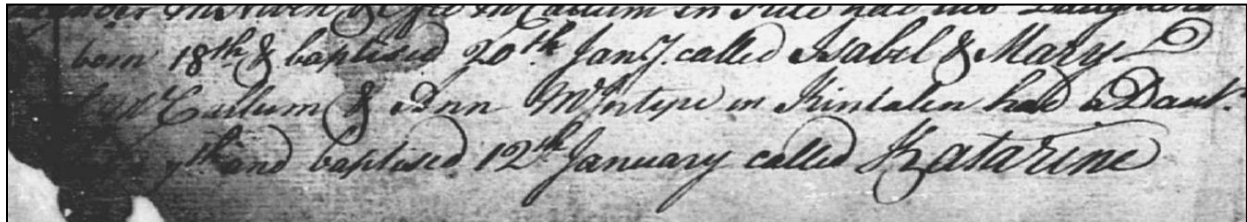 McNiven & Effie McCallum in had two Daughters
born 18th & baptised 20th Jany. called Isabel & Mary
McCallum & Ann McIntyre in Kintalen had a Daur.
7th and baptised 12th January called Katarine